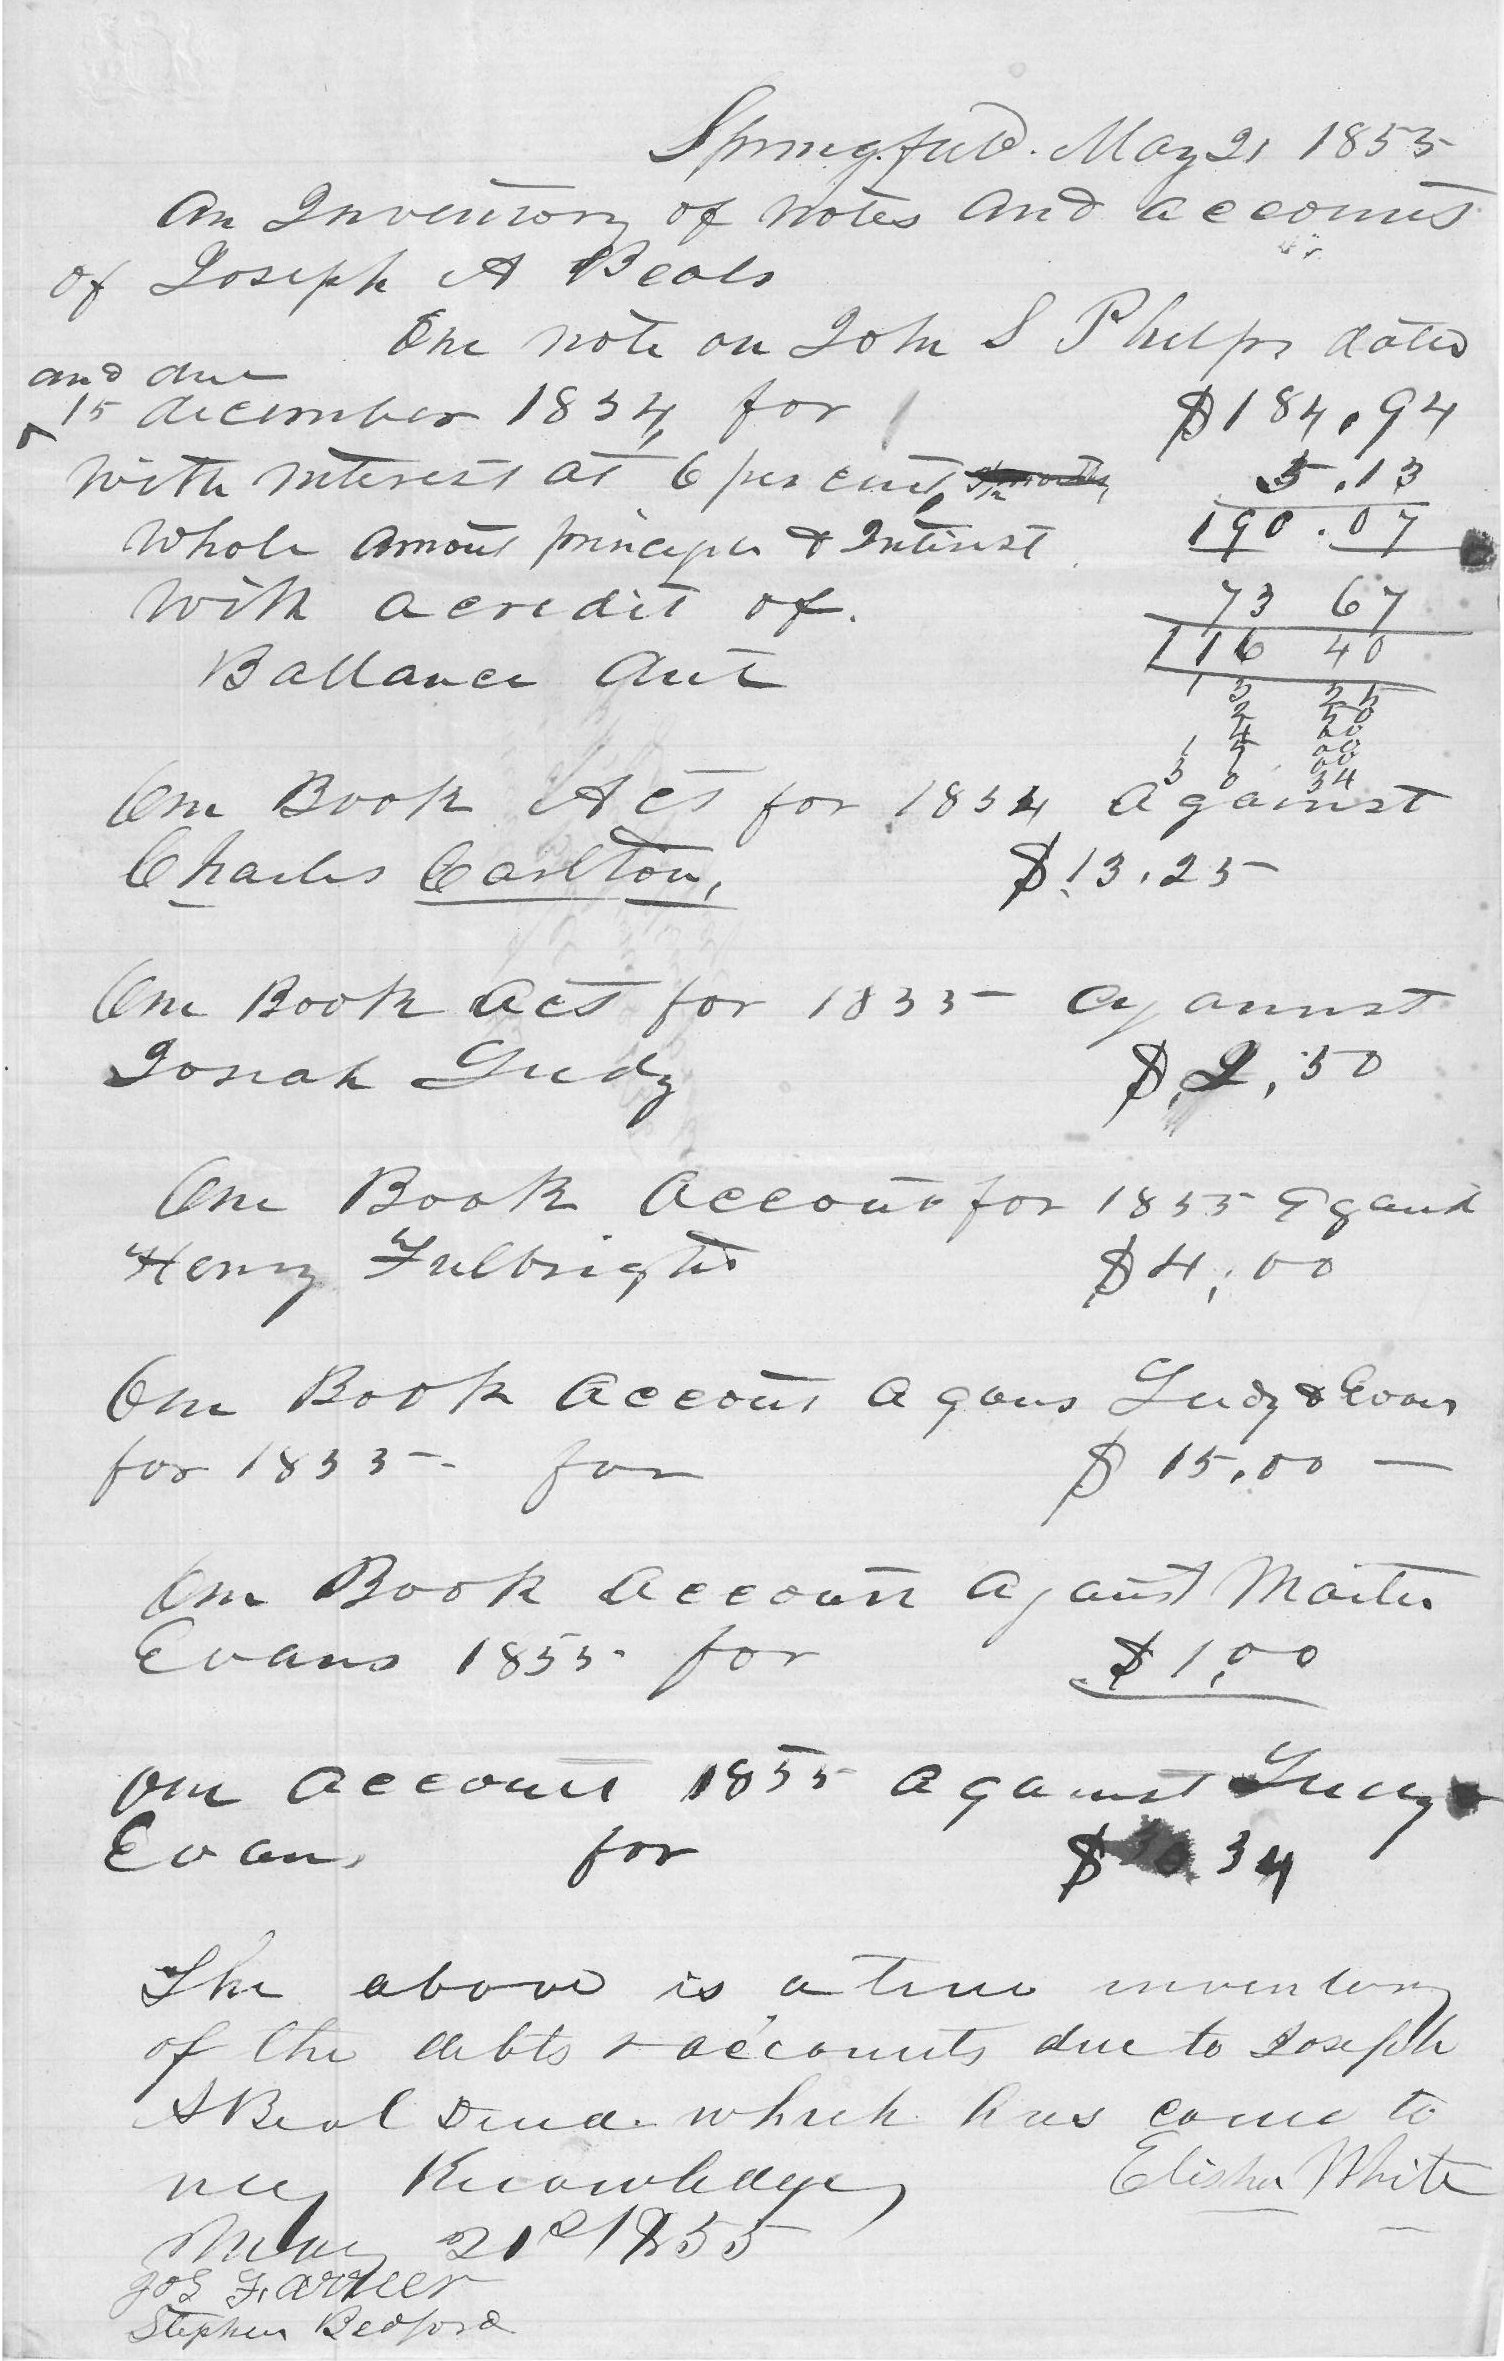 Springfield. May 21 1855
An Inventory of notes and accounts
of Joseph A Beals
One note on John S Phelps dated
and due
15 december 1854, for $184.94
with interest at 6 per cent, 5.13
190.07
whole amout principle & Interest
with acredit of. 73 67
Ballance Aut 116 40
13 25
2 50
4 00
15 00
1 00
30 34
One Book Act for 1854 against
Charles Carlton, $13.25
One Book Act for 1855 against
Josiah $2.50
One Book Account for 1855 Against
Henry Fulbright $4.00
One Book Account Agans & Evans
for 1855 - for $15.00 —
One Book Account Against
Evans 1855 for $1.00
One Account 1855 against
Evans for $30 34
The above is a true inventory
of the debts & accounts due to Joseph
A Beal Decd. which has come to
my Knowledge Elisha White
May 21st 1855
Jos Farrier
Stephen Bedford